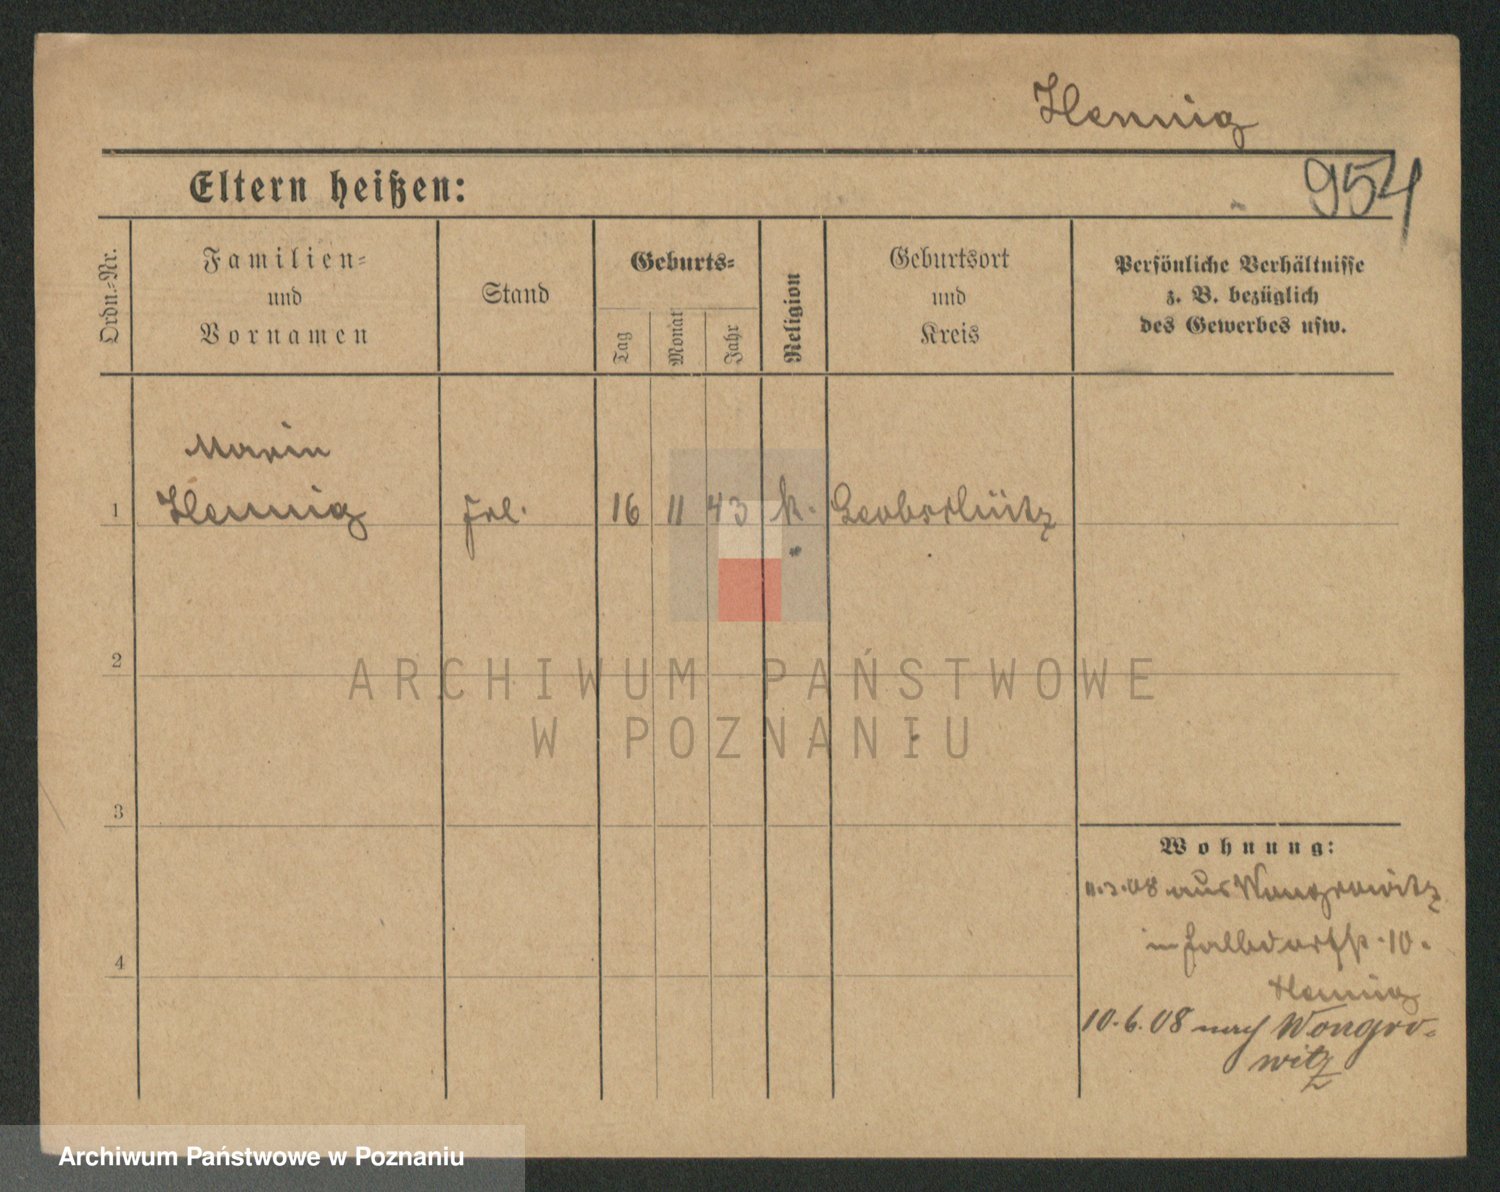 Hennig
954
Eltern heißen:
Ordn.-Nr.
Familien-
und
Vornamen
Stand
Geburts-
Tag
Monat
Jahr
Religion
Geburtsort
und
Kreis
Persönliche Verhältnisse
z. B. bezüglich
des Gewerbes usw.
Maria
1 Hennig Frl. 16 11 43 k.
2
3
4
Wohnung:
11.3.08 aus Wongrowitz
10.
Hennig
10.6.08 nach Wongro-
witz
ARCHIWUM PAŃSTWOWE
W POZNANIU
Archiwum Państwowe w Poznaniu